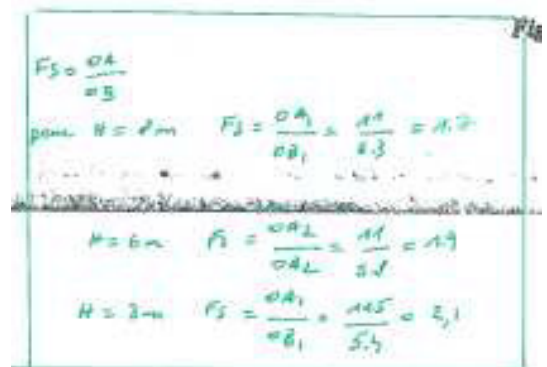 Fig
FS = OA / OB
pour H = 8m FS = OA1 / OB1 = 11 / 6.3 = 1.7
H = 6m FS = OA2 / OA2 = 11 / 5.8 = 1.9
H = 3m FS = OA1 / OB1 = 11.5 / 5.4 = 2,1